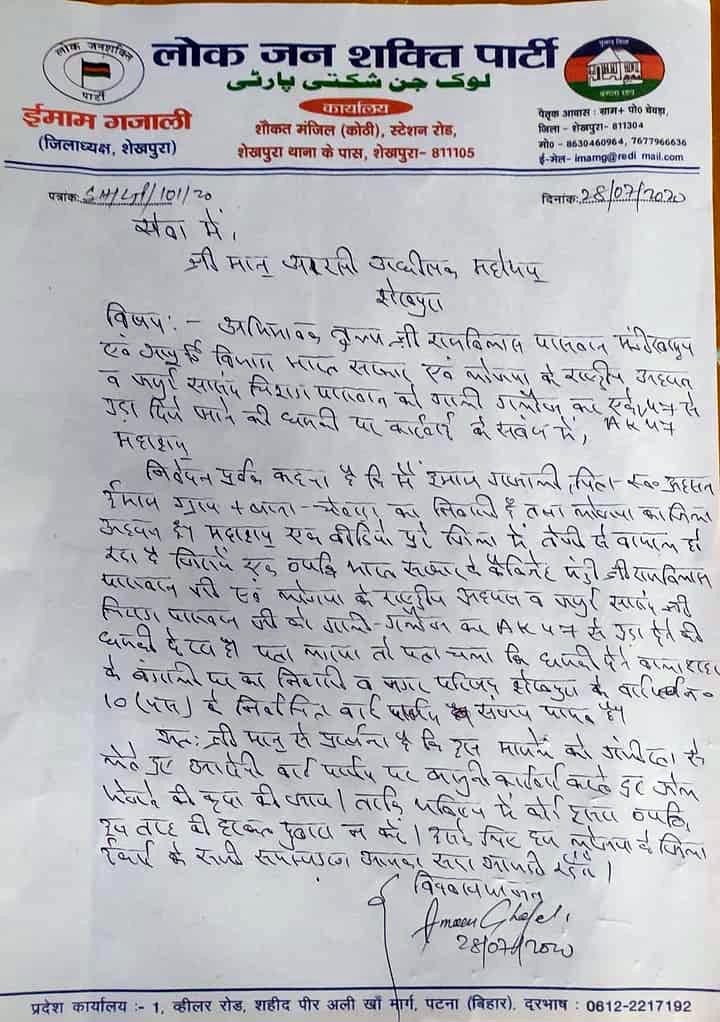 लोक जनशक्ति
पार्टी
लोक जन शक्ति पार्टी
لوک جن شکتی پارٹی
चुनाव चिन्ह
बंगला छाप
ईमाम गजाली
(जिलाध्यक्ष, शेखपुरा)
कार्यालय
शौकत मंजिल (कोठी), स्टेशन रोड,
शेखपुरा थाना के पास, शेखपुरा- 811105
पैतृक आवास : ग्राम+ पो० चेवड़ा,
जिला - शेखपुरा- 811304
मो० - 8630460964, 7677966636
ई-मेल- imamg@redi mail.com
पत्रांक: /101/20
दिनांक: 28/07/2020
सेवा में,
श्री मान् आरक्षी अधीक्षक महोदय
शेखपुरा
विषय :- अभिभावक तुल्य श्री रामविलास पासवान मंत्री खाद्य
एवं आपूर्ति विभाग भारत सरकार एवं लोजपा के राष्ट्रीय अध्यक्ष
व जमुई सांसद चिराग पासवान को गाली गलौज कर से
उड़ा दिये जाने की धमकी पर कार्रवाई के संबंध में, AK 47
महाशय
निवेदन पूर्वक कहना है कि मैं ईमाम गजाली, पिता- स्व० अहसन
ईमाम ग्राम + थाना - चेवड़ा का निवासी हूँ तथा लोजपा का जिला
अध्यक्ष हूँ। महाशय एक वीडियो पुरे जिला में तेजी से वायरल हो
रहा है जिसमें एक व्यक्ति भारत सरकार के कैबिनेट मंत्री श्री रामविलास
पासवान जी एवं लोजपा के राष्ट्रीय अध्यक्ष व जमुई सांसद श्री
चिराग पासवान जी को गाली-गलौज कर AK 47 से उड़ा देने की
धमकी दे रहा है। पता लगाया तो पता चला कि धमकी देने वाला शहर
के बंगाली पर का निवासी व नगर परिषद शेखपुरा के वार्ड न०
10 (दस) के निर्वाचित वार्ड पार्षद है।
अतः श्री मान् से प्रार्थना है कि इस मामले को गंभीरता से
लेते हुए आरोपी वार्ड पार्षद पर कानुनी कार्रवाई करते हुए जेल
भेजने की कृपा की जाय। ताकि भविष्य में कोई दूसरा व्यक्ति
इस तरह की हरकत दुबारा न करें। इसके लिए हम लोजपा के जिला
ईकाई के सभी आपका सदा आभारी रहेंगे।
विश्वासभाजन
28/07/2020
प्रदेश कार्यालय :- 1, व्हीलर रोड, शहीद पीर अली खाँ मार्ग, पटना (बिहार). दरभाष : 0612-2217192